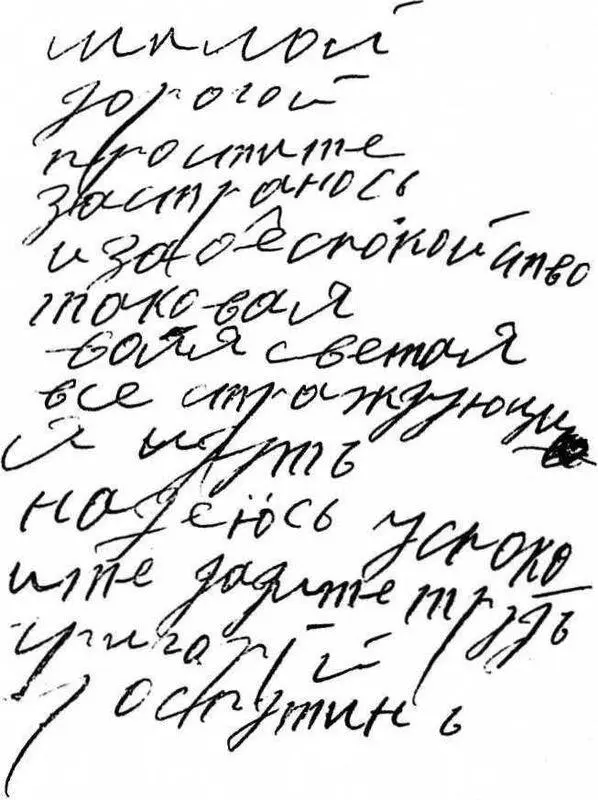 милой
дорогой
простите
застранось
и за обеспокойство
таковая
воля светая
все стражующи
я идутъ
надеюсь успоко
ите дадите трудъ
григорий
роспутинъ